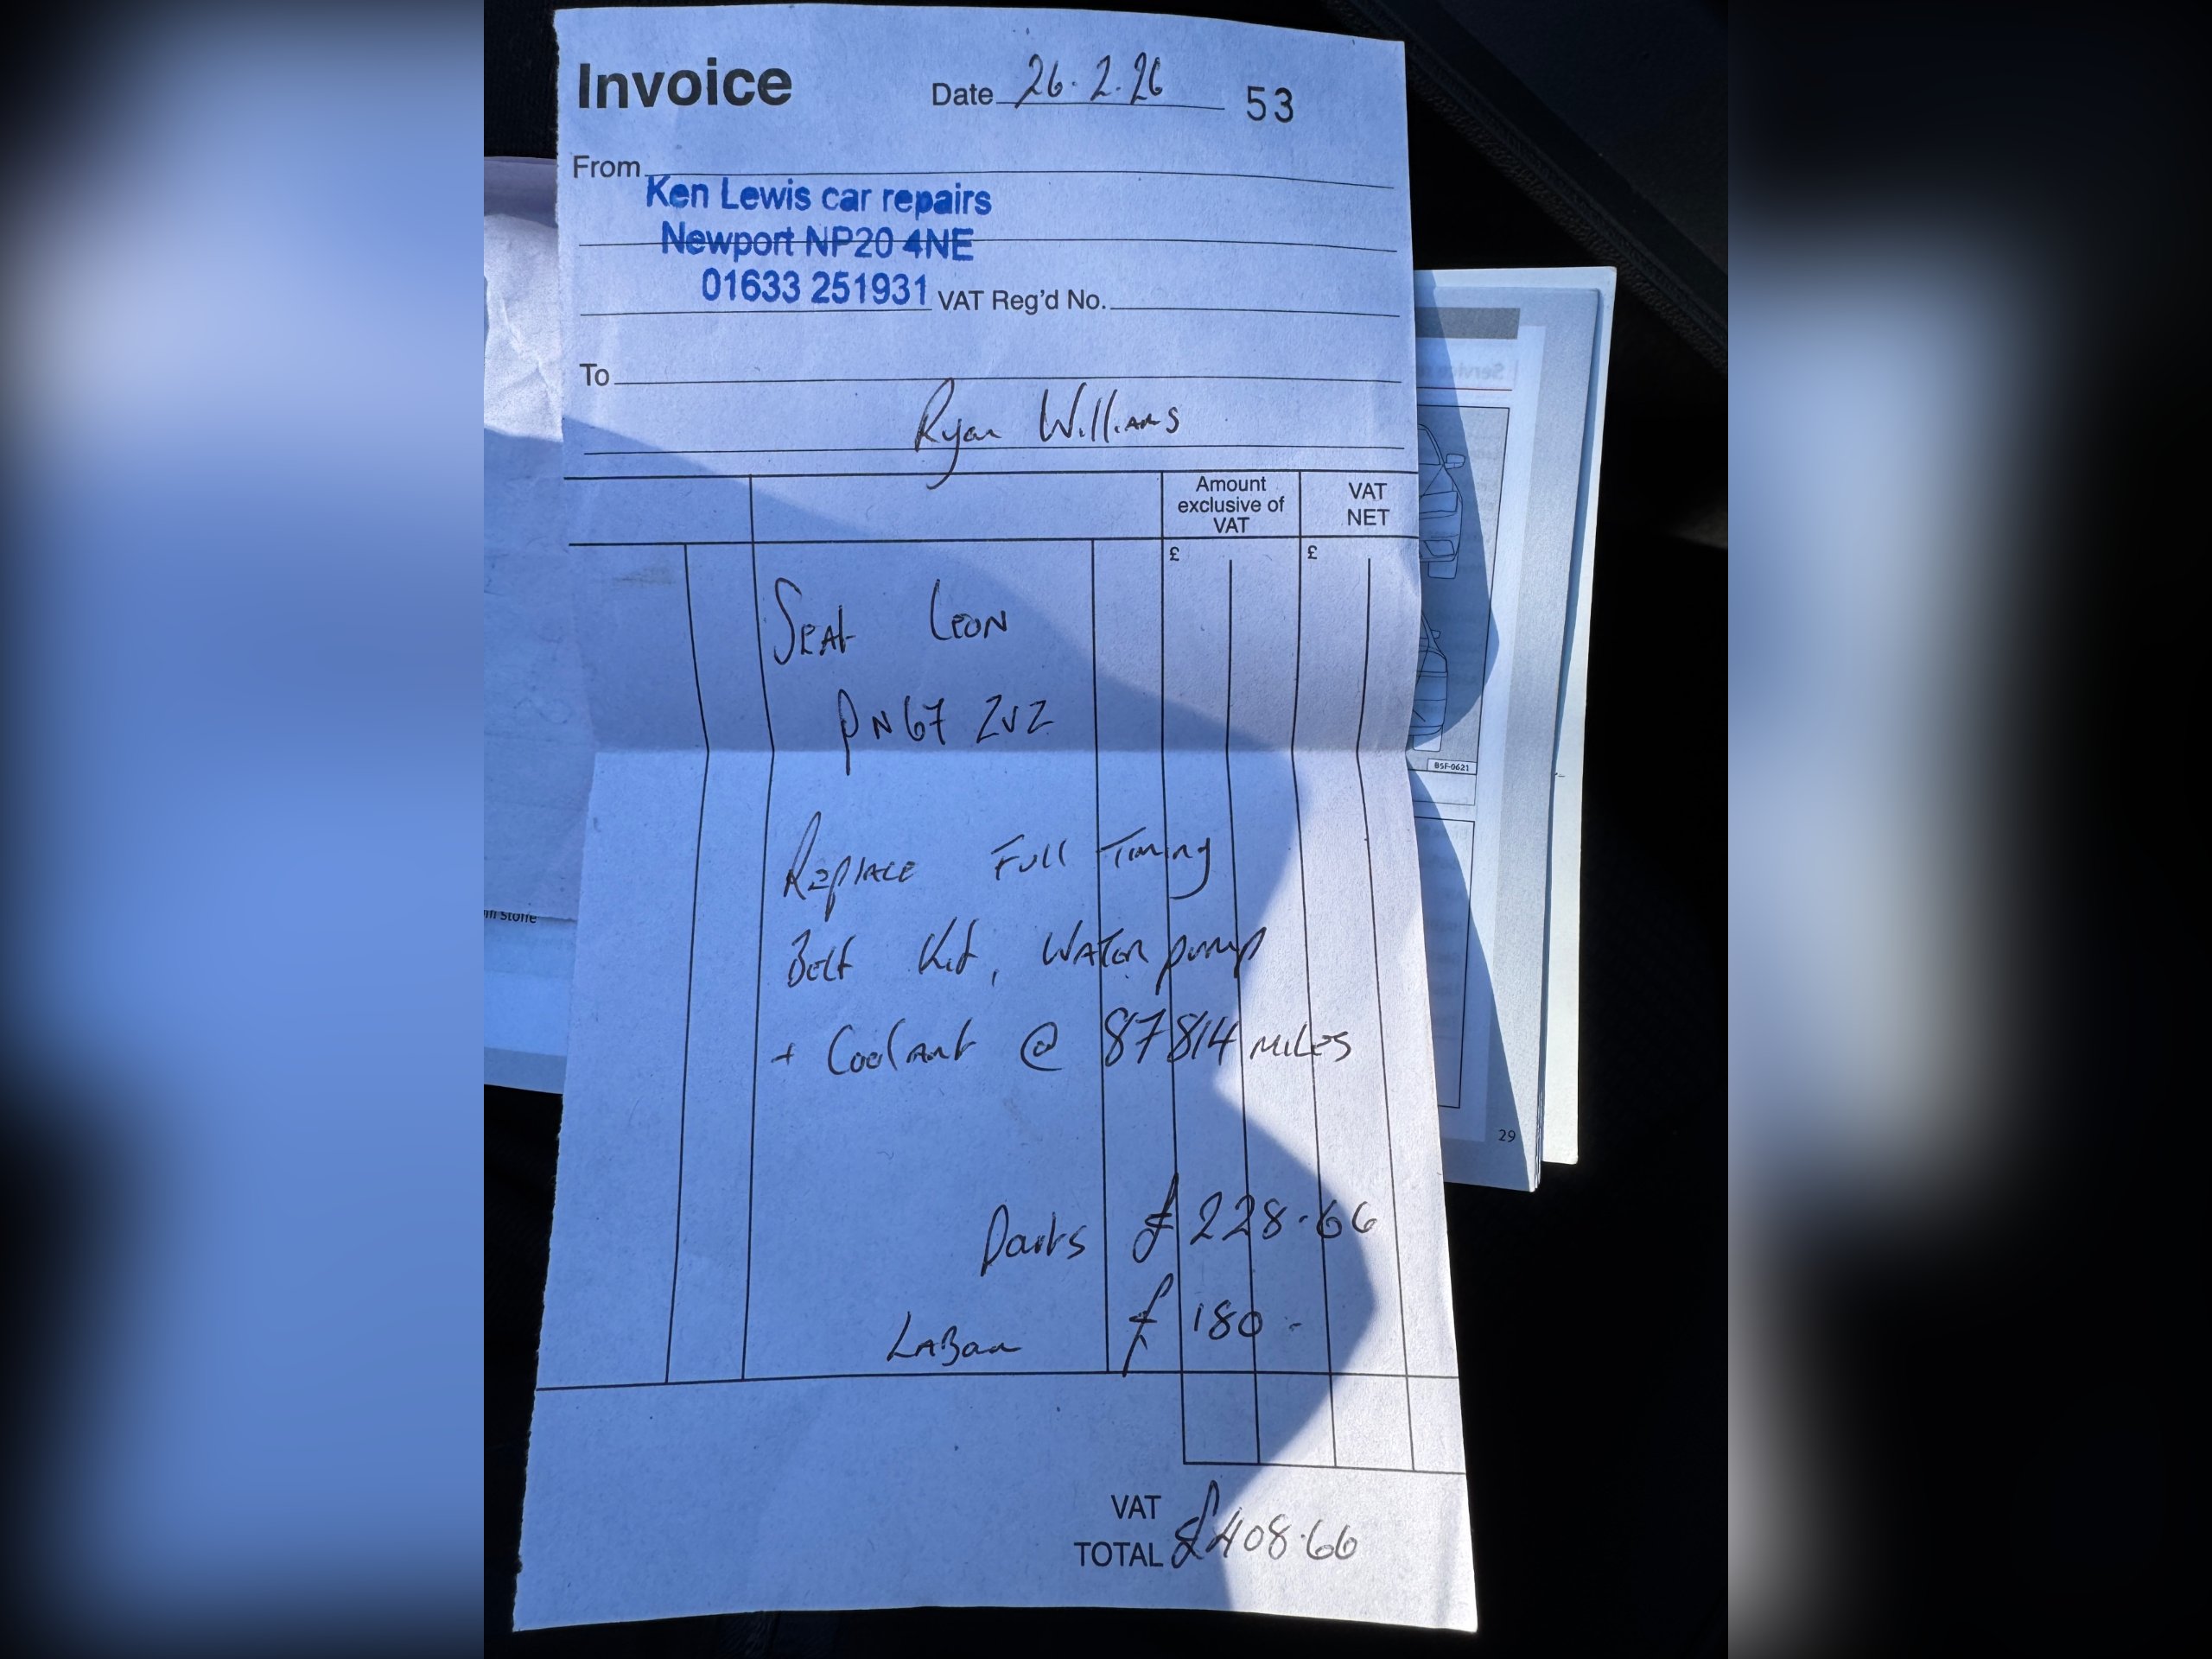 Invoice
Date 26.2.26 53
From
Ken Lewis car repairs
Newport NP20 4NE
01633 251931 VAT Reg'd No.
To
Ryan Williams
Amount exclusive of VAT
VAT NET
£ £
Seat Leon
PN67 ZVZ
Replace Full Timing
Belt Kit, Water pump
+ Coolant @ 87814 miles
Parts £228.66
Labour £180 -
VAT
TOTAL £408.66
Service
BSF-0621
29